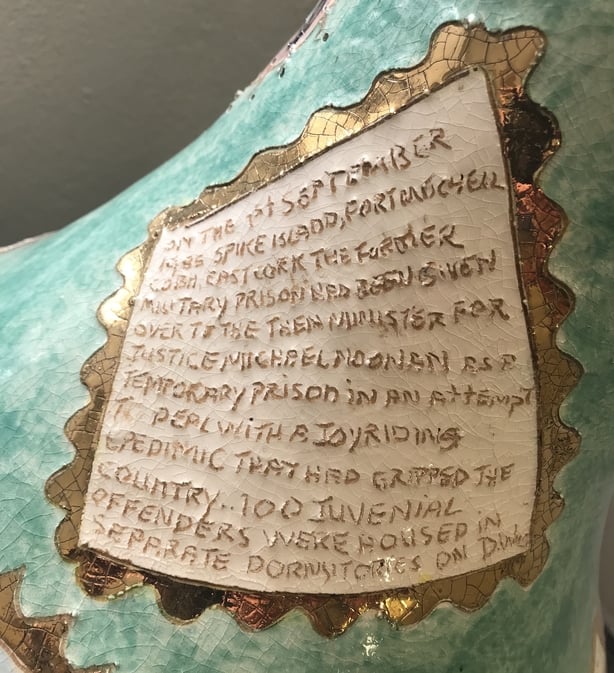 ON THE 1st SEPTEMBER
1985 SPIKE ISLADD, FORT MITCHELL
COBH, EAST CORK THE FORMER
MILITARY PRISON HAD BEEN GIVEN
OVER TO THE THEN MINISTER FOR
JUSTICE MICHAEL NOONAN AS A
TEMPORARY PRISON iN AN ATTEMPT
TO DEAL WITH A JOYRIDING
EPEDIMIC THAT HAD GRIPPED THE
COUNTRY.. 100 JUVENIAL
OFFENDERS WERE HOUSED IN
SEPARATE DORMITORIES ON